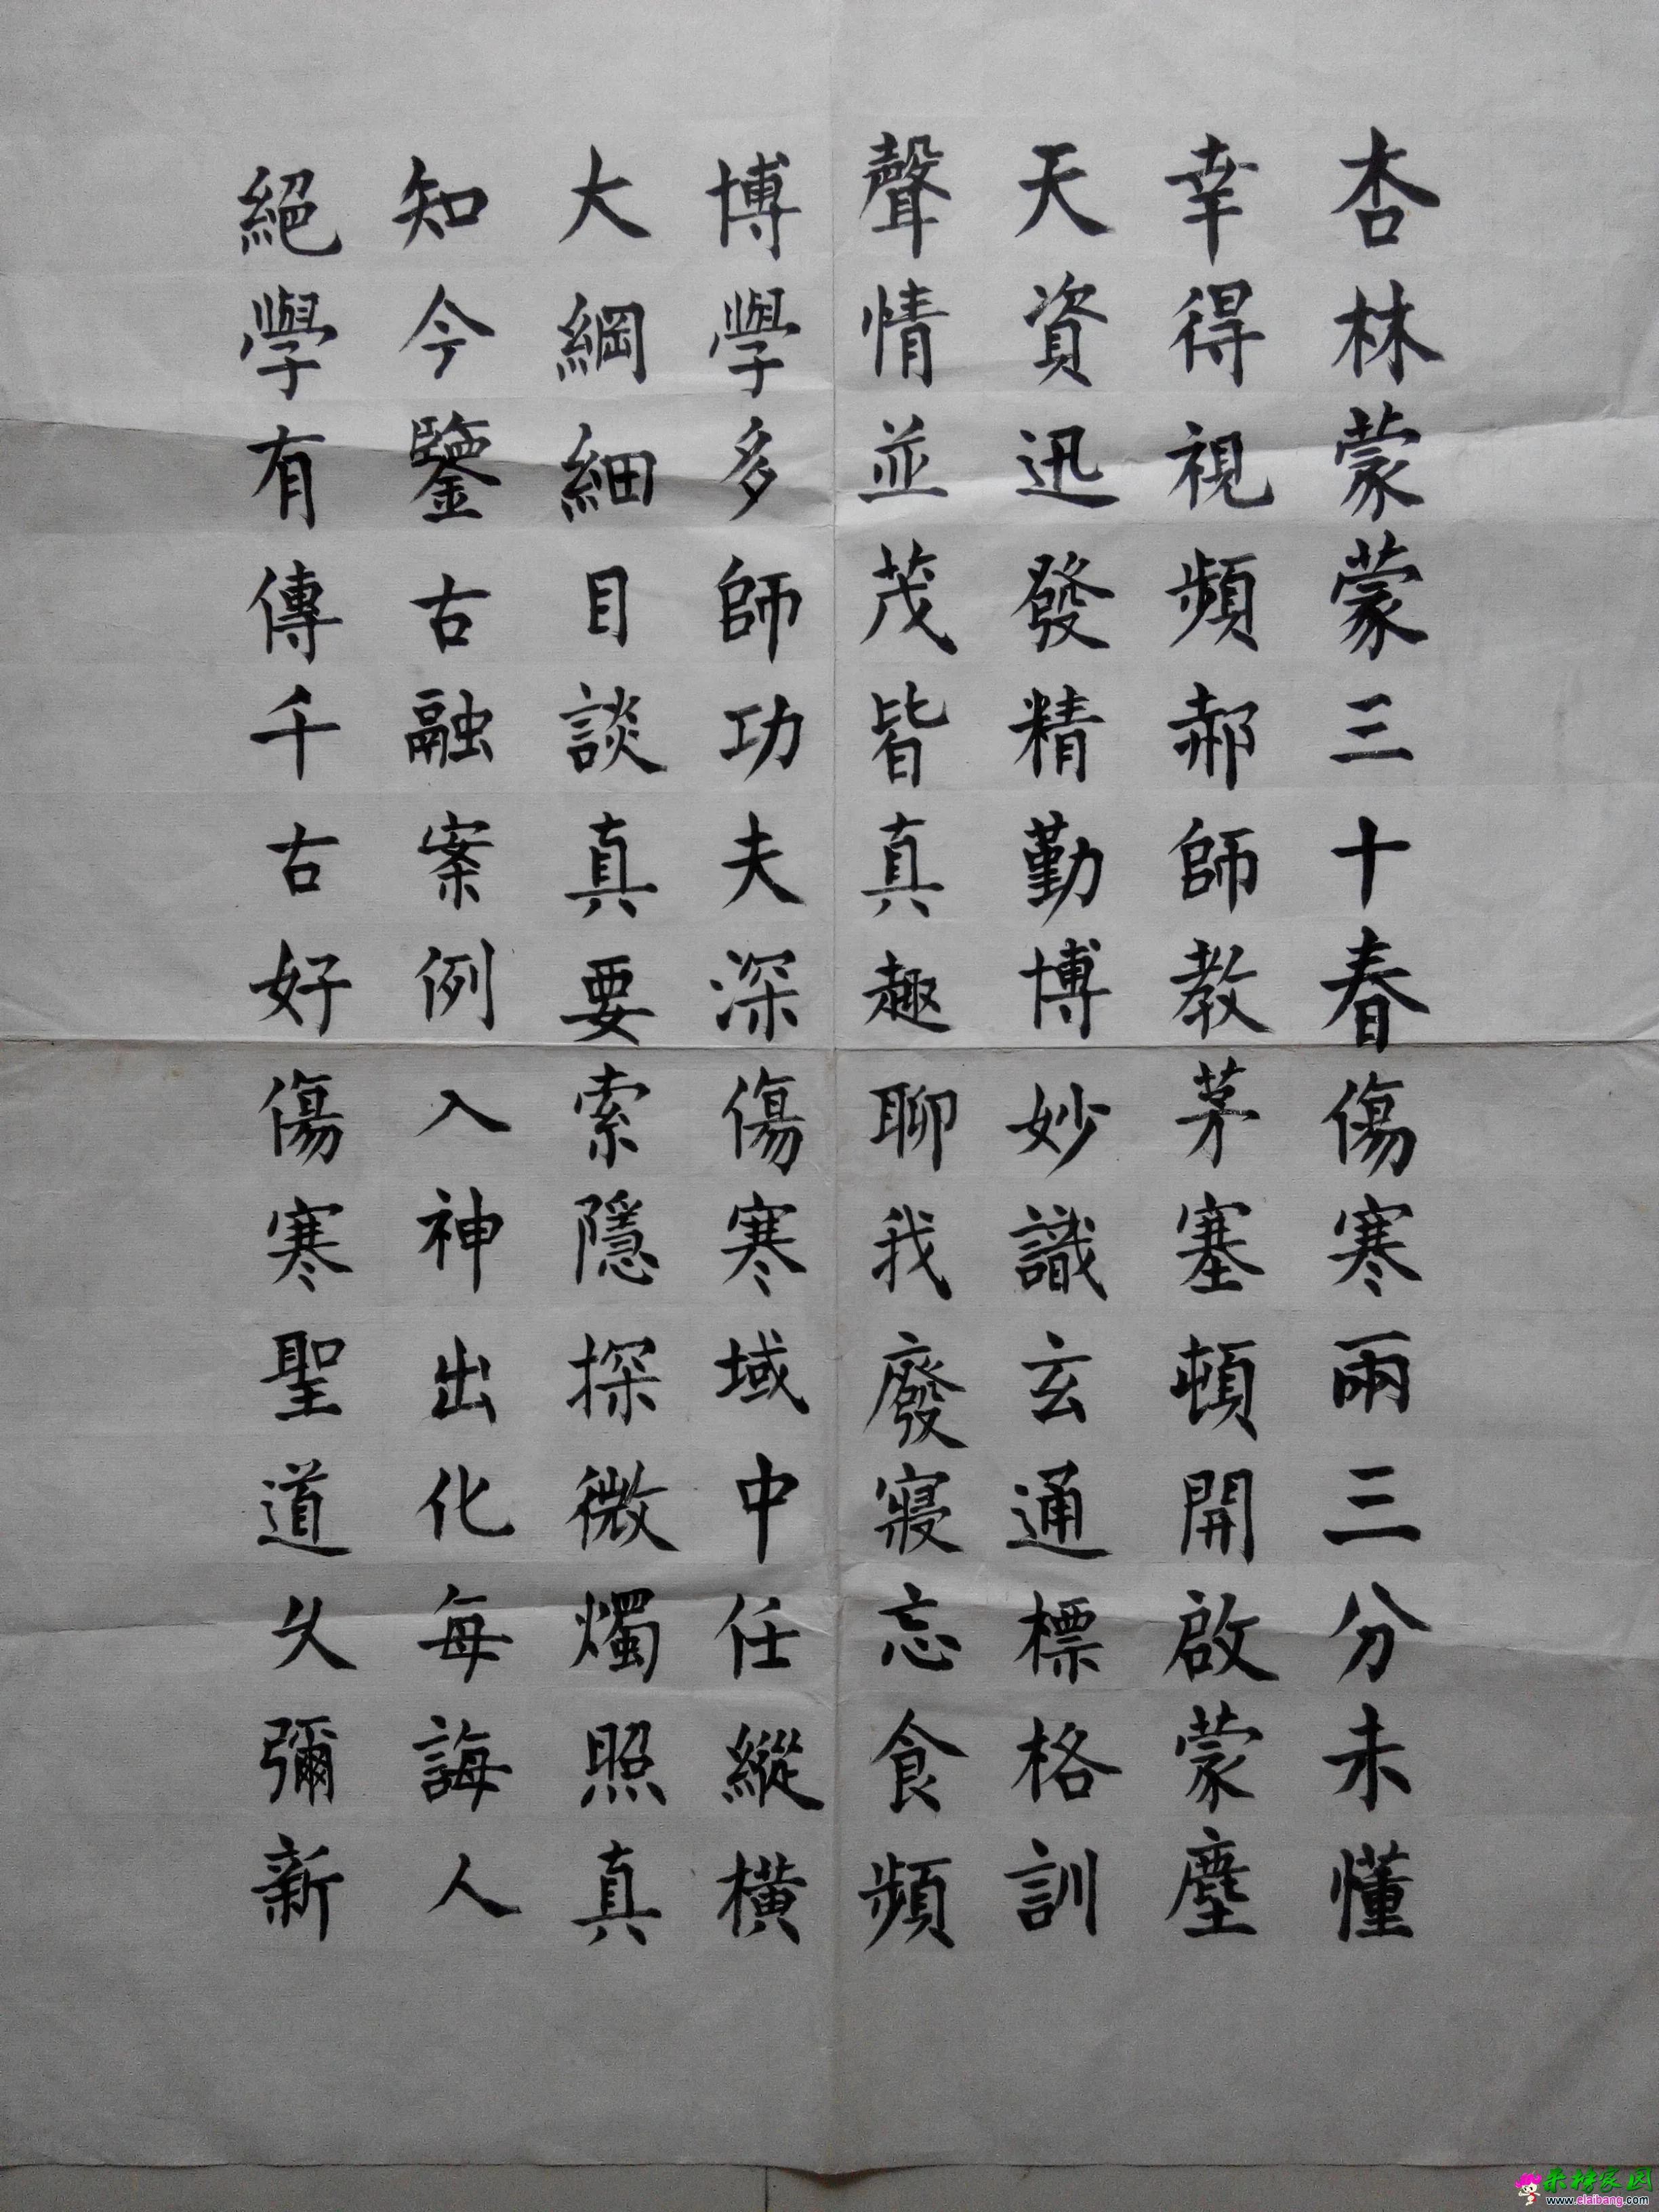 杏林蒙蒙三十春傷寒兩三分未懂
幸得視頻郝師教茅塞頓開啟蒙塵
天資迅發精勤博妙識玄通標格訓
聲情並茂皆真趣聊我廢寢忘食頻
博學多師功夫深傷寒域中任縱橫
大綱細目談真要索隱探微燭照真
知今鑒古融案例入神出化每誨人
絕學有傳千古好傷寒聖道久彌新
来榜家园
www.elaibang.com